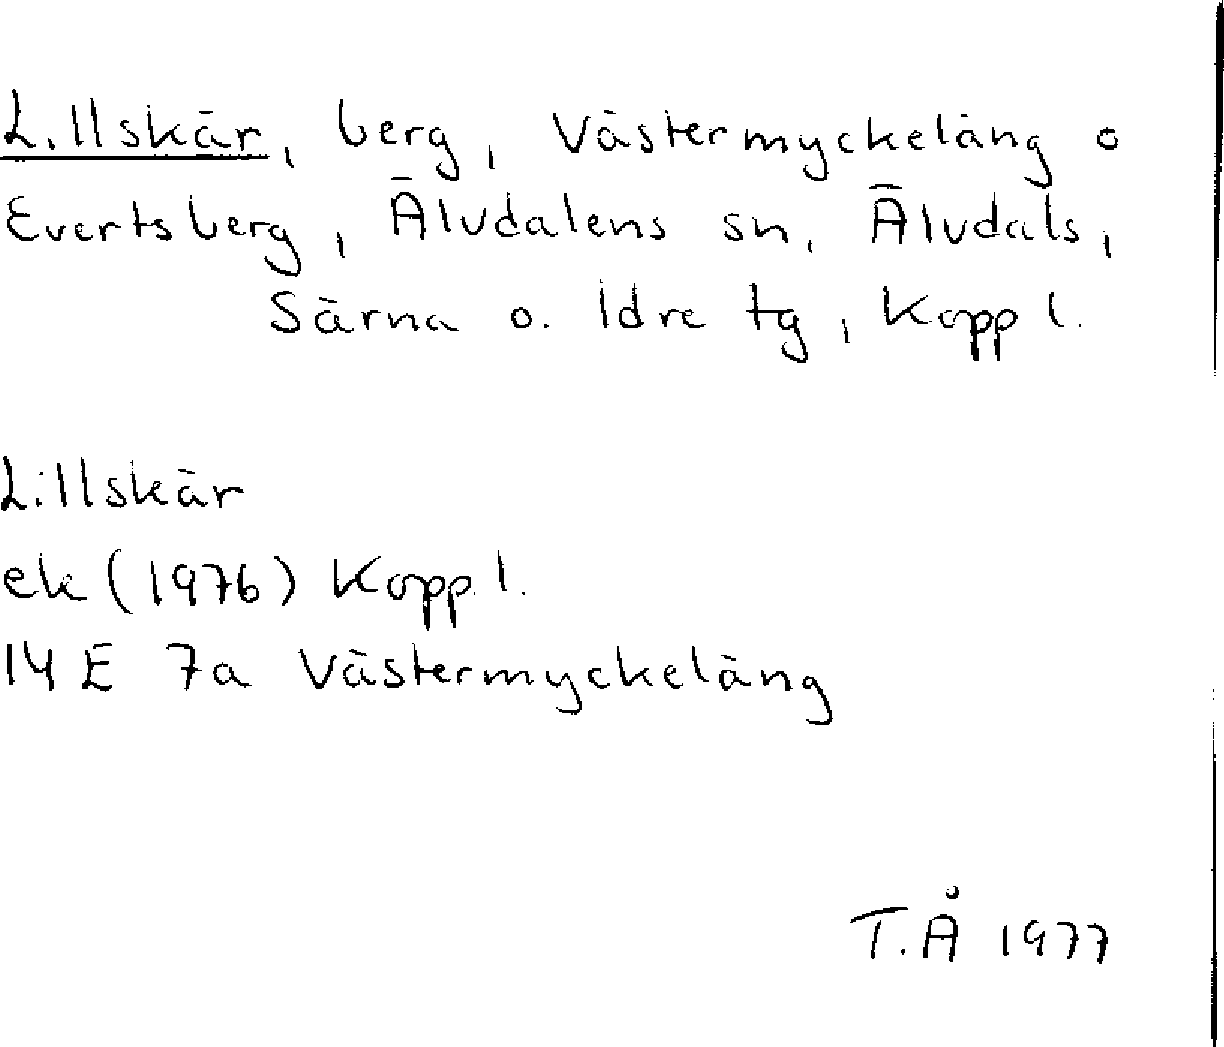 Lillskär, berg, Västermyckeläng o
Evertsberg, Älvdalens sn, Älvdals,
Särna o. Idre tg, Kopp l.
Lillskär
ek (1976) Kopp. l.
14 E 7a Västermyckeläng
T.Å 1977